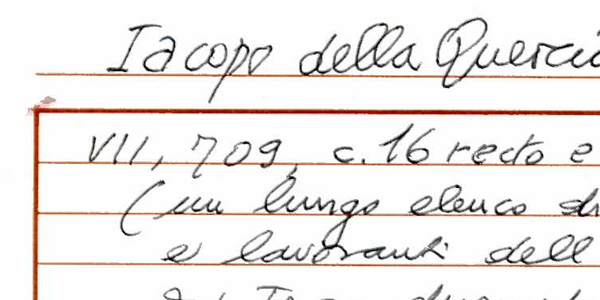 Iacopo della Querci
VII, 709, c. 16 recto e
(un lungo elenco di
e lavoranti dell